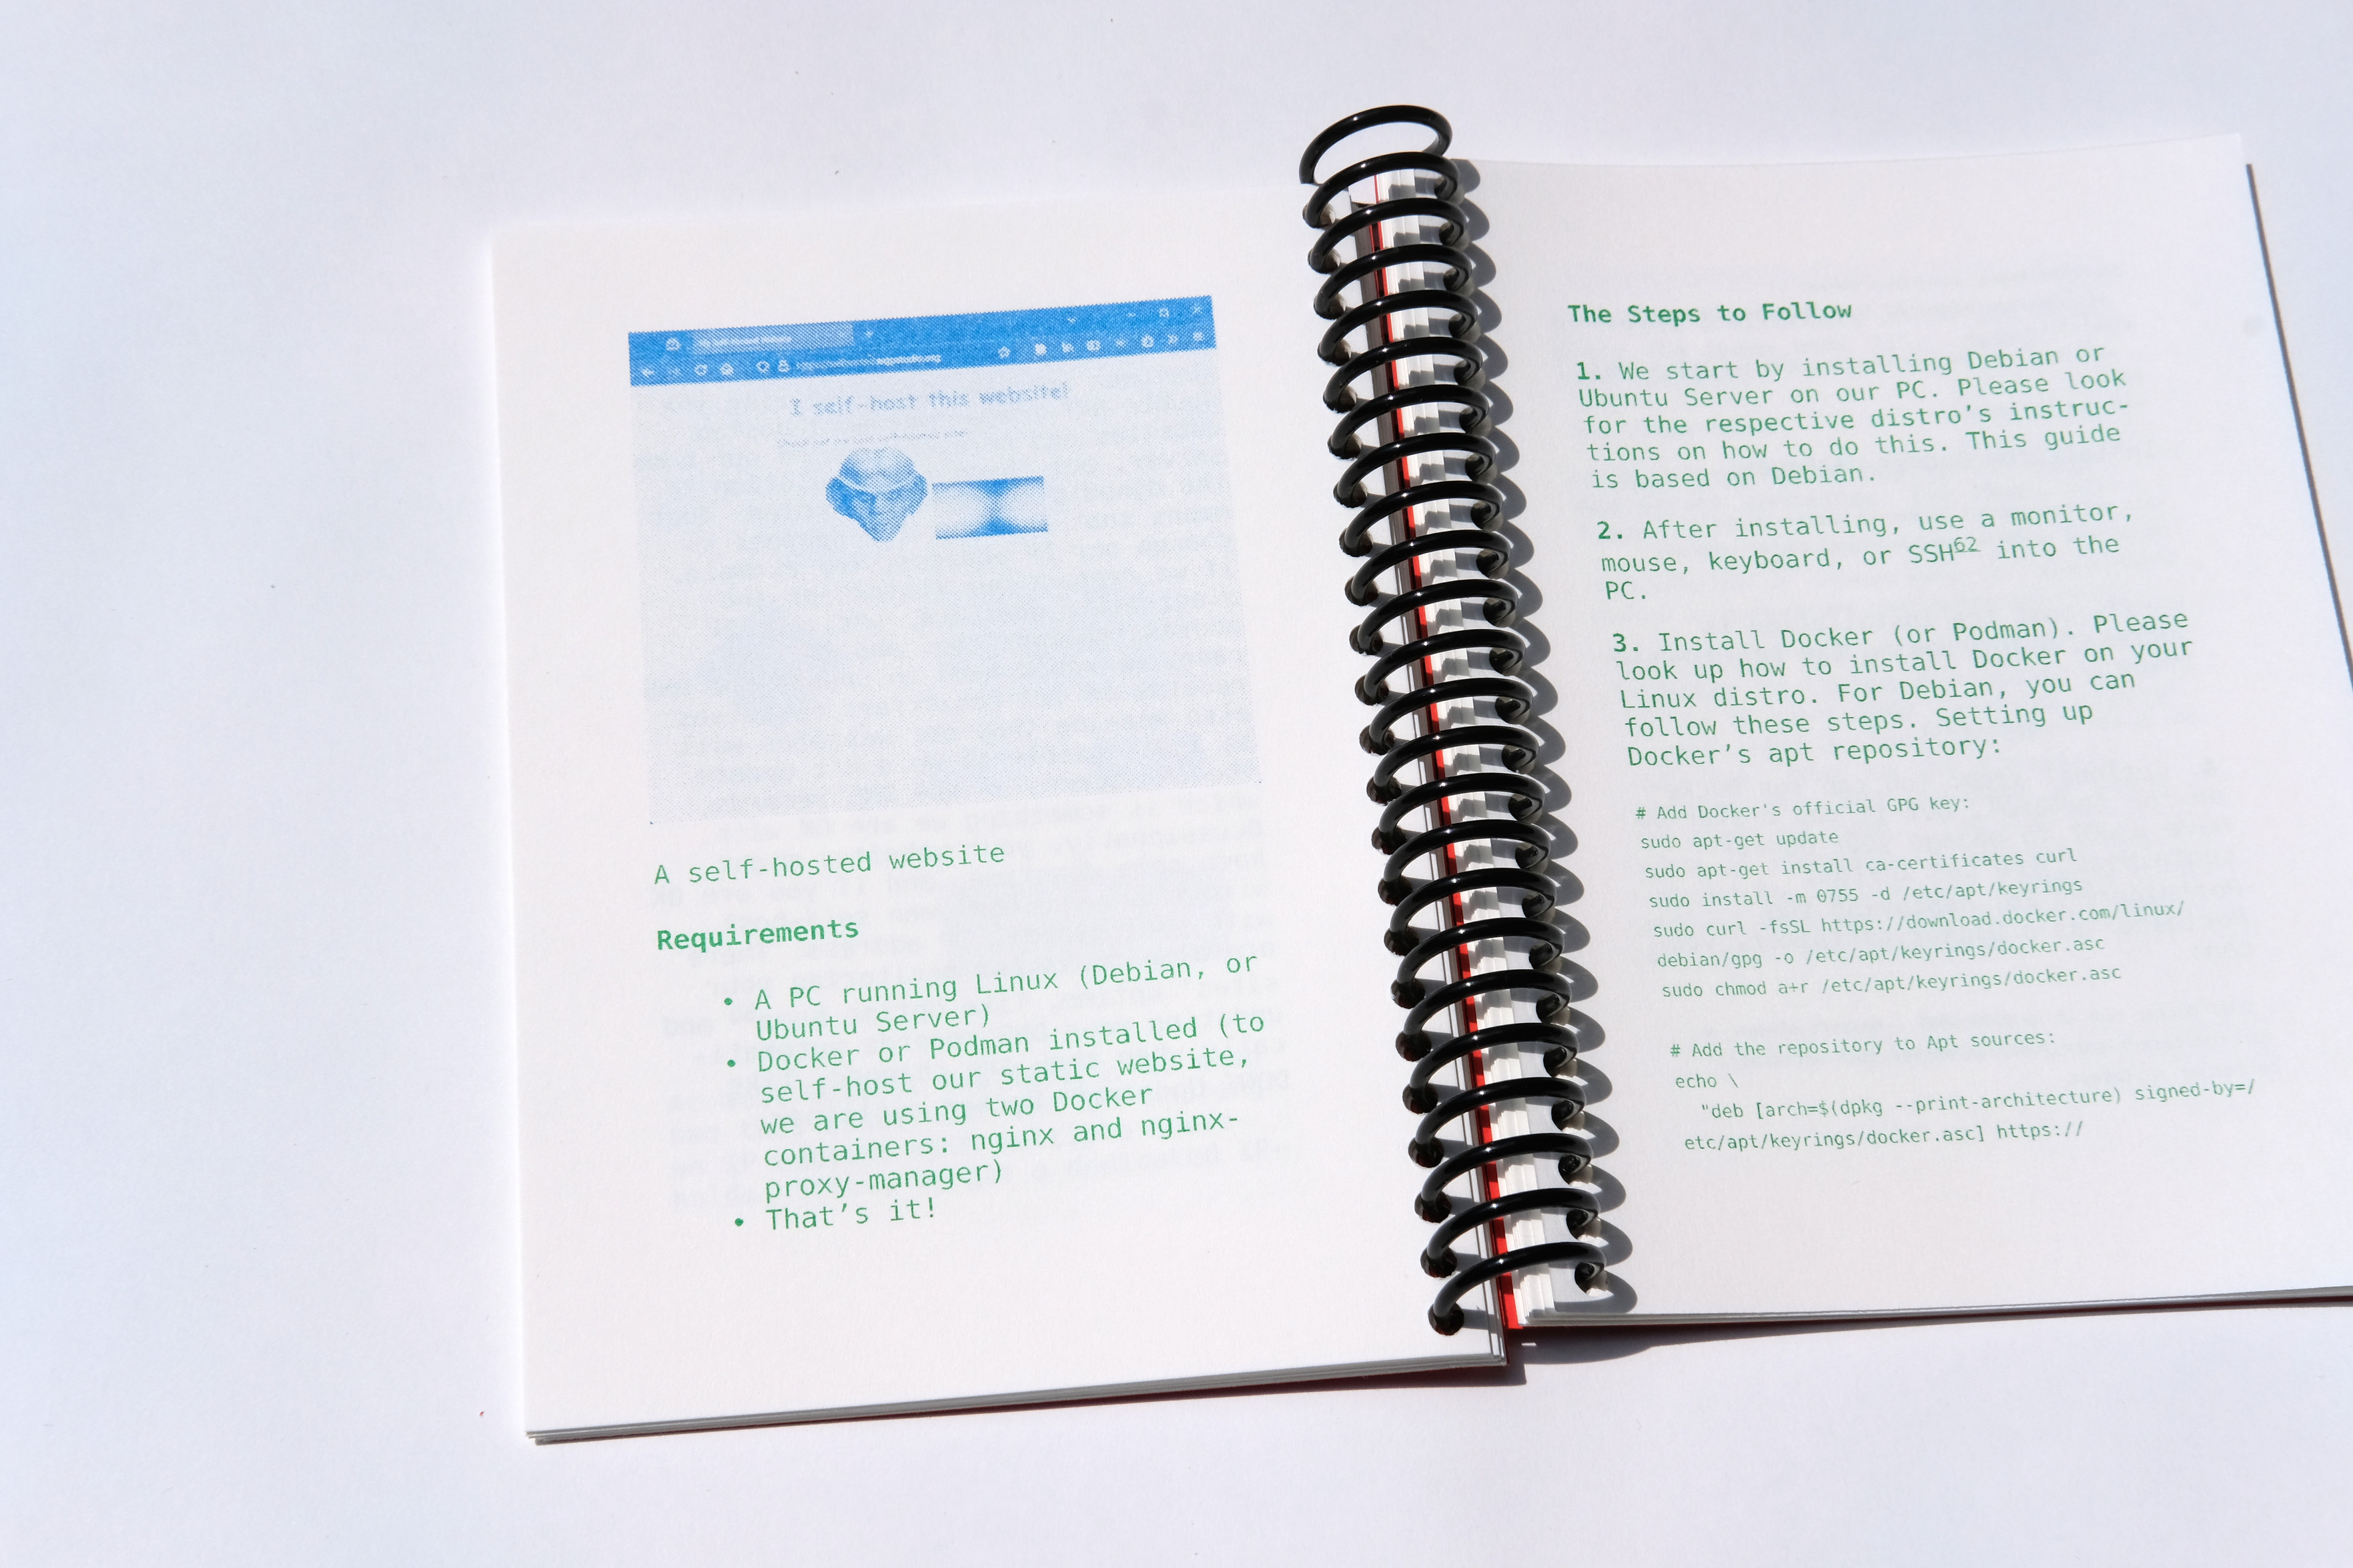 I self-host this website!
A self-hosted website
Requirements
• A PC running Linux (Debian, or
Ubuntu Server)
• Docker or Podman installed (to
self-host our static website,
we are using two Docker
containers: nginx and nginx-
proxy-manager)
• That’s it!
The Steps to Follow
1. We start by installing Debian or
Ubuntu Server on our PC. Please look
for the respective distro’s instruc-
tions on how to do this. This guide
is based on Debian.
2. After installing, use a monitor,
mouse, keyboard, or SSH62 into the
PC.
3. Install Docker (or Podman). Please
look up how to install Docker on your
Linux distro. For Debian, you can
follow these steps. Setting up
Docker’s apt repository:
# Add Docker's official GPG key:
sudo apt-get update
sudo apt-get install ca-certificates curl
sudo install -m 0755 -d /etc/apt/keyrings
sudo curl -fsSL https://download.docker.com/linux/
debian/gpg -o /etc/apt/keyrings/docker.asc
sudo chmod a+r /etc/apt/keyrings/docker.asc
# Add the repository to Apt sources:
echo \
"deb [arch=$(dpkg --print-architecture) signed-by=/
etc/apt/keyrings/docker.asc] https://